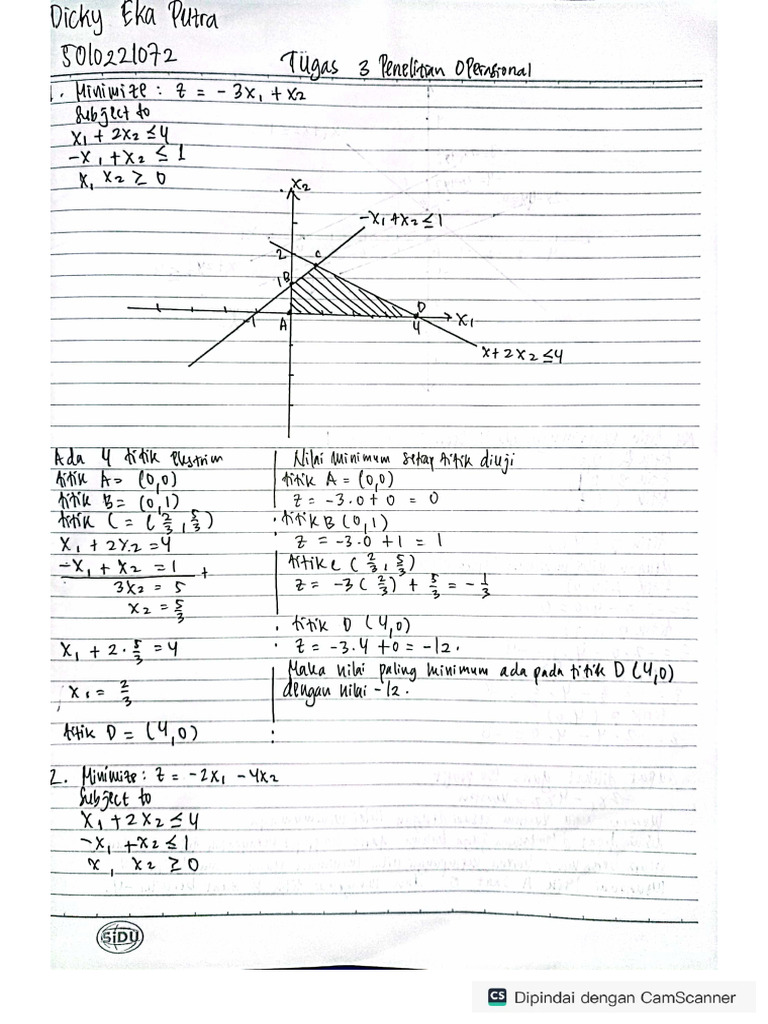 Dicky Eka Putra
5010221072
Tugas 3 Penelitian Operasional
1. Minimize : z = -3x₁ + x₂
Subject to
x₁ + 2x₂ ≤ 4
-x₁ + x₂ ≤ 1
x, x₂ ≥ 0
x₂
-x₁ + x₂ ≤ 1
2
C
1
B
-1
A
D
4
x₁
x + 2x₂ ≤ 4
Ada 4 titik ekstrim
titik A = (0,0)
titik B = (0,1)
titik C = (2/3, 5/3)
x₁ + 2x₂ = 4
-x₁ + x₂ = 1 +
3x₂ = 5
x₂ = 5/3
x₁ + 2 · 5/3 = 4
x₁ = 2/3
titik D = (4,0)
Nilai minimum setiap titik diuji
titik A = (0,0)
z = -3.0 + 0 = 0
titik B (0,1)
z = -3.0 + 1 = 1
titik C (2/3, 5/3)
z = -3(2/3) + 5/3 = -1/3
titik D (4,0)
z = -3.4 + 0 = -12.
Maka nilai paling minimum ada pada titik D (4,0)
dengan nilai -12.
2. Minimize : z = -2x₁ - 4x₂
Subject to
x₁ + 2x₂ ≤ 4
-x₁ + x₂ ≤ 1
x, x₂ ≥ 0
SiDU
CS Dipindai dengan CamScanner